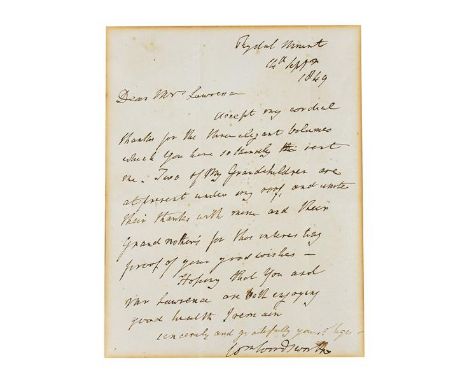 Rydal Mount
14th Septr
1849
Dear Mrs Lawrence
Accept my cordial
thanks for the three elegant volumes
which you have so kindly sent
me. Two of my Grandchildren are
at present under my roof, and unite
their thanks with mine and their
Grandmother's for this interesting
proof of your good wishes —
Hoping that you and
Mr Lawrence are both enjoying
good health I remain
sincerely and gratefully yours
Wm Wordsworth